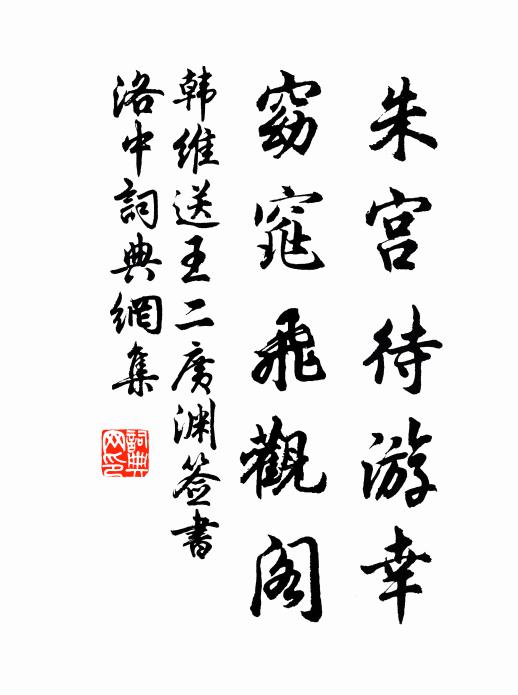 朱宫待游幸
窈窕飛觀閣
韩維送王二廣渊签書
洛中詞典網集
詞典
网印